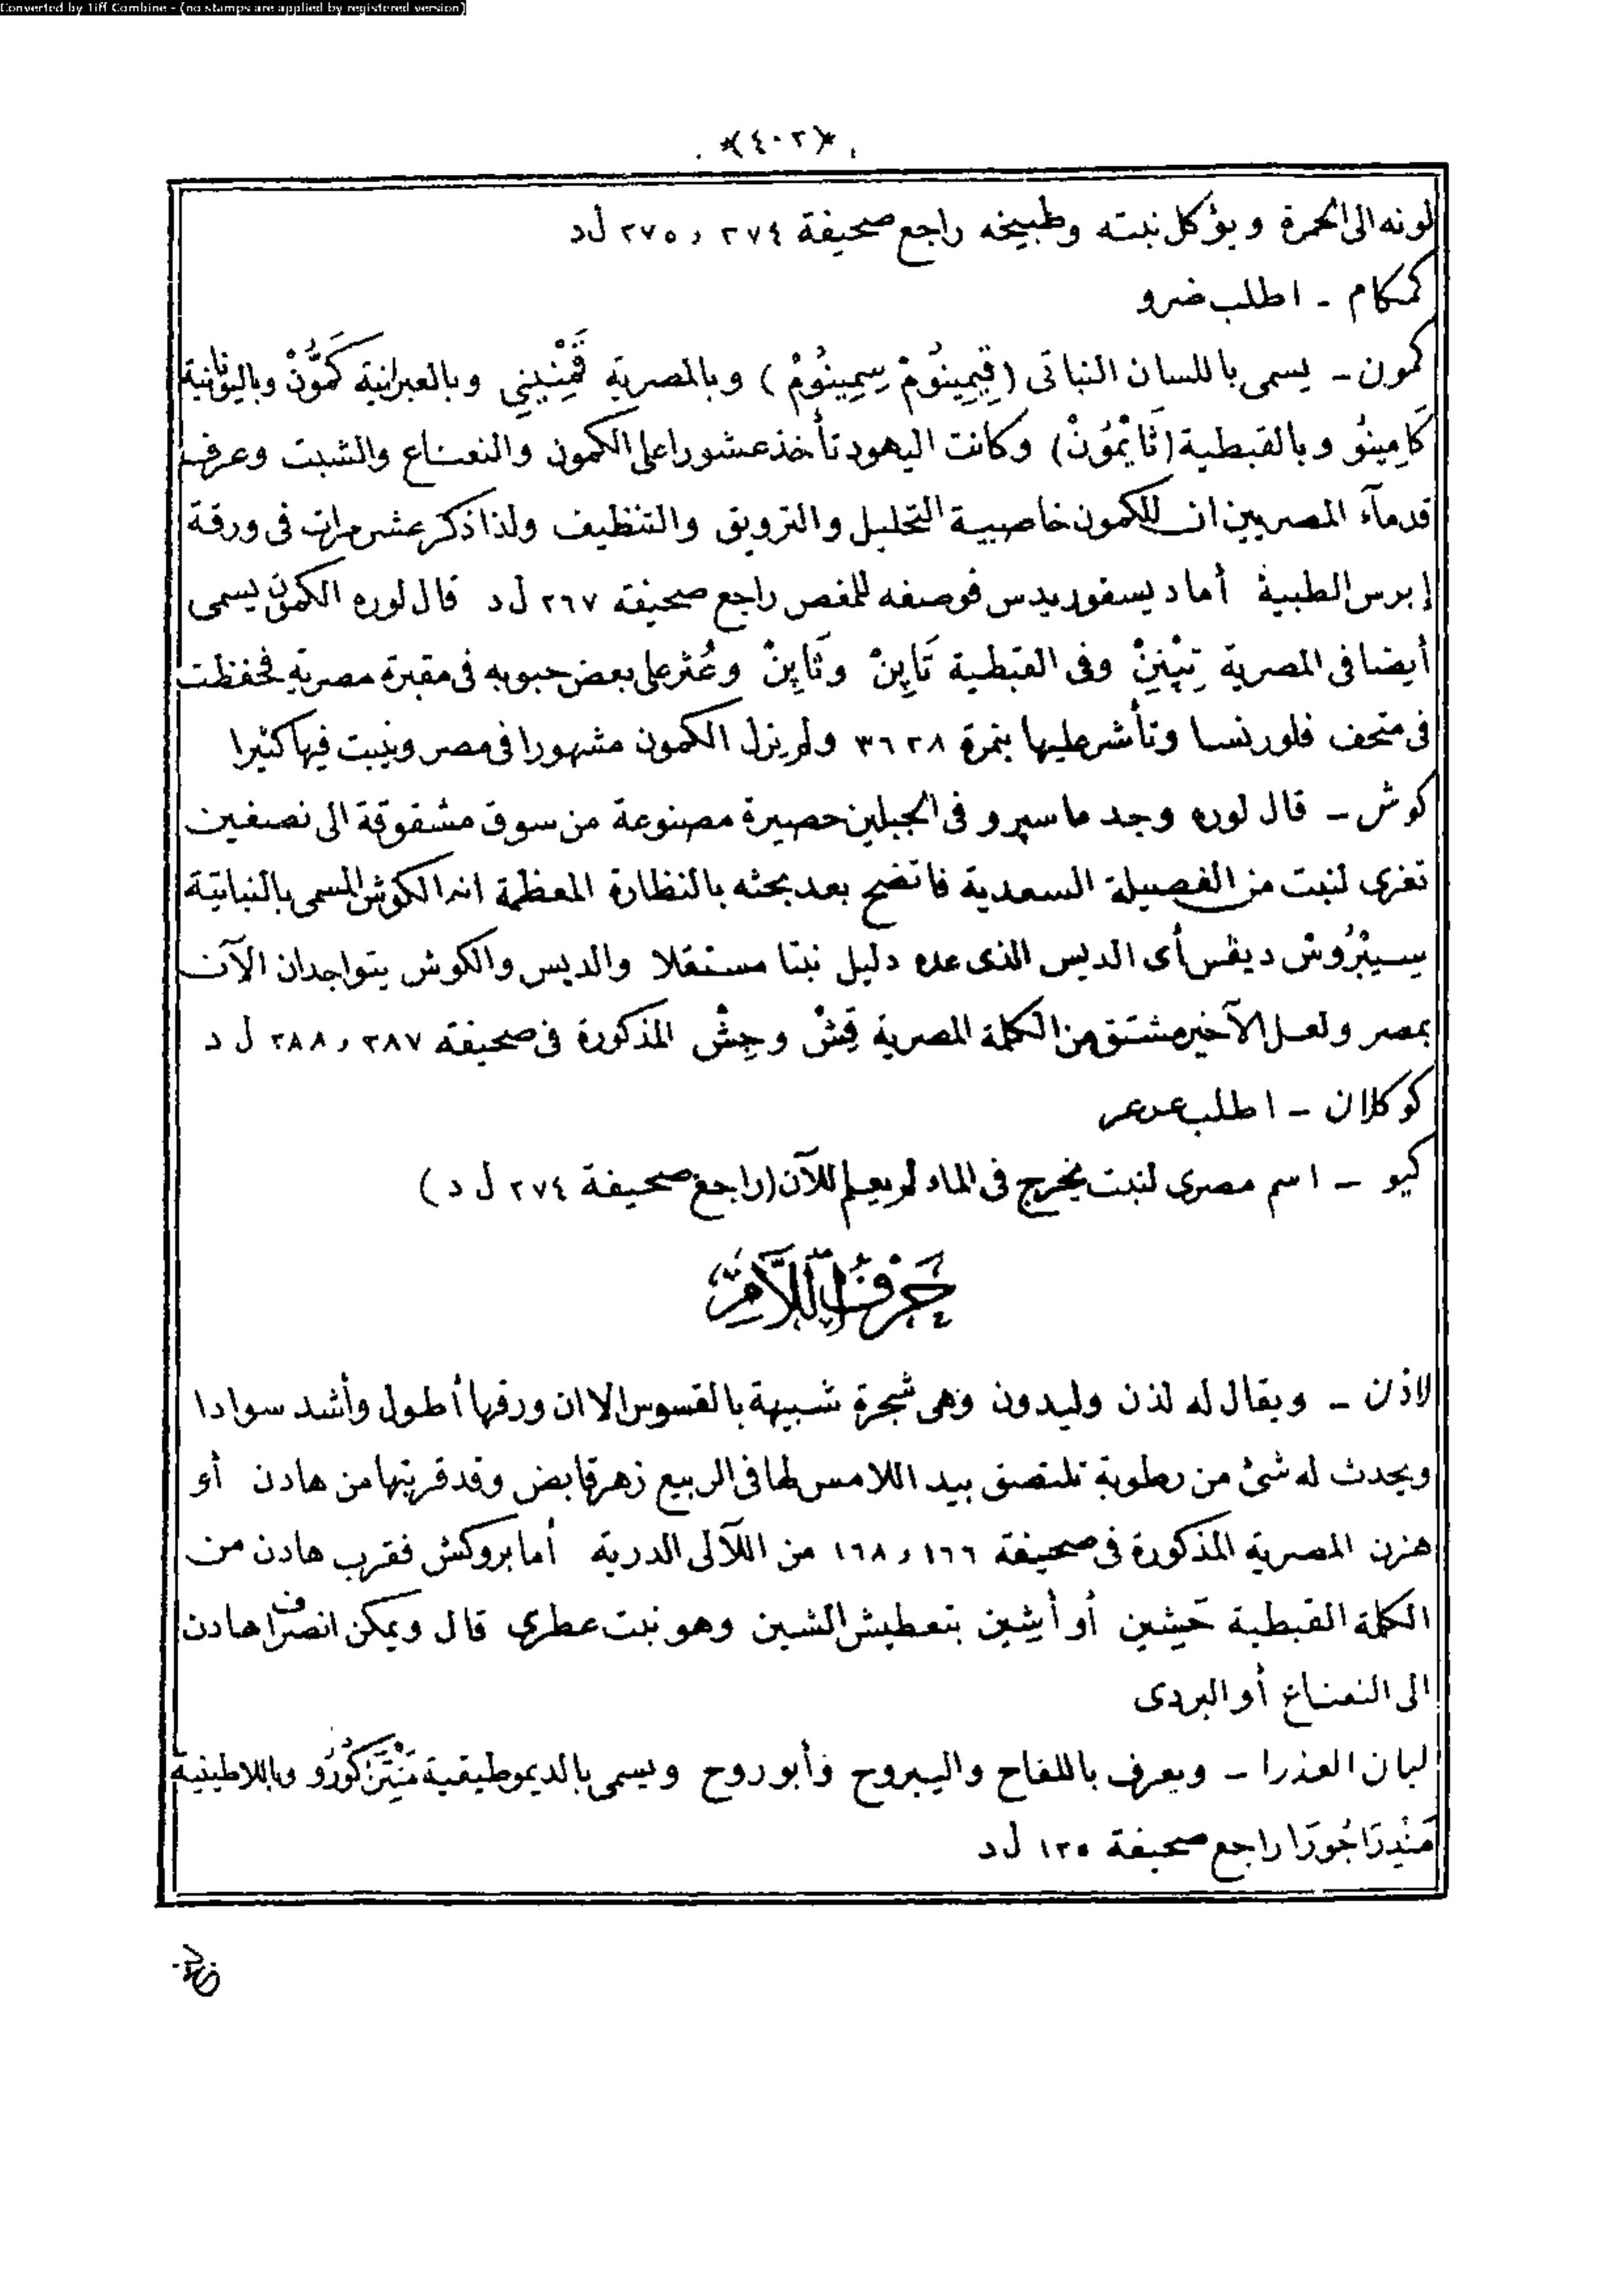 Converted by Tiff Combine - (no stamps are applied by registered version)
*(٤٠٢)*
لونه الى الحمرة ويؤكل نبته وطبيخه راجع صحيفة ٢٧٤ و ٢٧٥ ل د
كمكام ـ اطلب ضرو
كمون ـ يسمى باللسان النباتى (قِيمِينُومْ سِمِينُومْ) وبالمصرية قَمْنِينِي وبالعبرانية كَمُّونْ وباليونانية
كَامِينُو وبالقبطية (ثَايْمُونْ) وكانت اليهود تأخذ عشورا على الكمون والنعناع والشبت وعرف
قدمآء المصريين ان للكمون خاصية التحليل والترويق والتنظيف ولذا ذكر عشر مرات فى ورقة
إبرس الطبية أما ديسقوريدس فوصفه للمغص راجع صحيفة ٢٦٧ ل د قال لوره الكمون يسمى
أيضا فى المصرية تِپْنِنْ وفى القبطية تَاپِنْ وثَاپِنْ وعُثر على بعض حبوبه فى مقبرة مصرية فحفظت
فى متحف فلورنسا وتأشر عليها بنمرة ٣٦٢٨ ولم يزل الكمون مشهورا فى مصر وينبت فيها كثيرا
كوش ـ قال لوره وجد ماسپرو فى الجبلين حصيرة مصنوعة من سوق مشقوقة الى نصفين
تعزى لنبت من الفصيلة السعدية فاتضح بعد بحثه بالنظارة المعظمة انه الكوش المسمى بالنباتية
سِيپْرُوش ديڤس أى الديس الذى عده دليل نبتا مستقلا والديس والكوش يتواجدان الآن
بمصر ولعل الآخير مشتق من الكلمة المصرية قِشْ وجِشْ المذكورة فى صحيفة ٢٨٧ و ٢٨٨ ل د
كوكلان ـ اطلب عرعر
كيو ـ اسم مصرى لنبت يخرج فى الماء لم يعلم للآن (راجع صحيفة ٢٧٤ ل د)
حَرْفُ اللَّامِ
لاذن ـ ويقال له لذن وليدون وهى شجرة شبيهة بالقسوس الا ان ورقها أطول وأشد سوادا
ويحدث له شئ من رطوبة تلتصق بيد اللامس لها فى الربيع زهر قابض وقد قربتها من هادن أو
هزن المصرية المذكورة فى صحيفة ١٦٦ و ١٦٨ من اللآلى الدرية أما بروكش فقرب هادن من
الكلمة القبطية حَشِين أو أشِين بتعطيش الشين وهو نبت عطرى قال ويمكن انصراف هادن
الى النعناع أو البردى
لبان العذرا ـ ويعرف باللفاح واليبروح وأبو روح ويسمى بالديموطيقية مَنْتَرَكُورُو وباللاطينية
مَنْدِرَاجُورَا راجع صحيفة ١٣٥ ل د